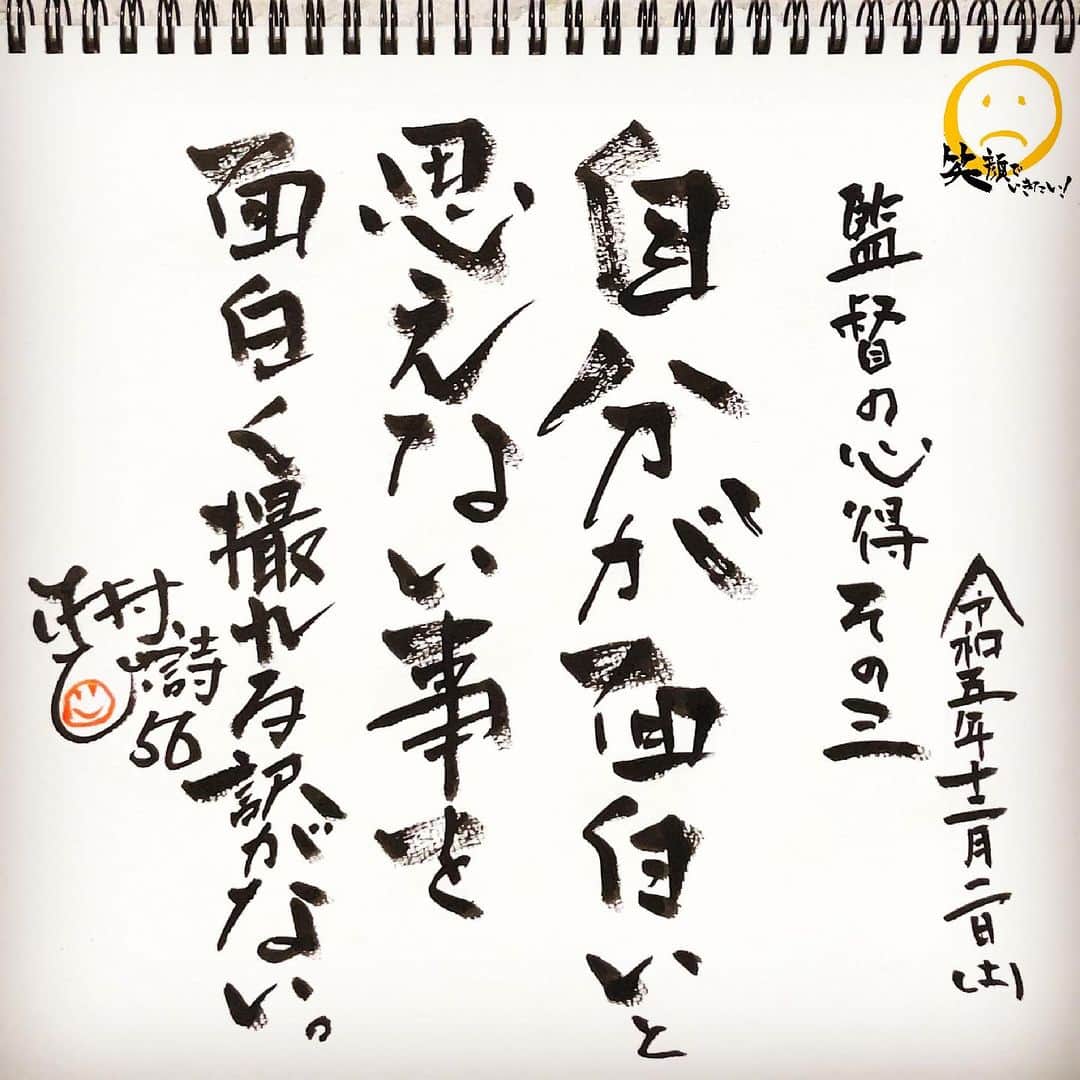 笑顔で
いきたい!
令和五年十二月二日(土)
監督の心得 その三
自分が面白いと
思えない事を
面白く撮れる訳がない。
村
詩
56